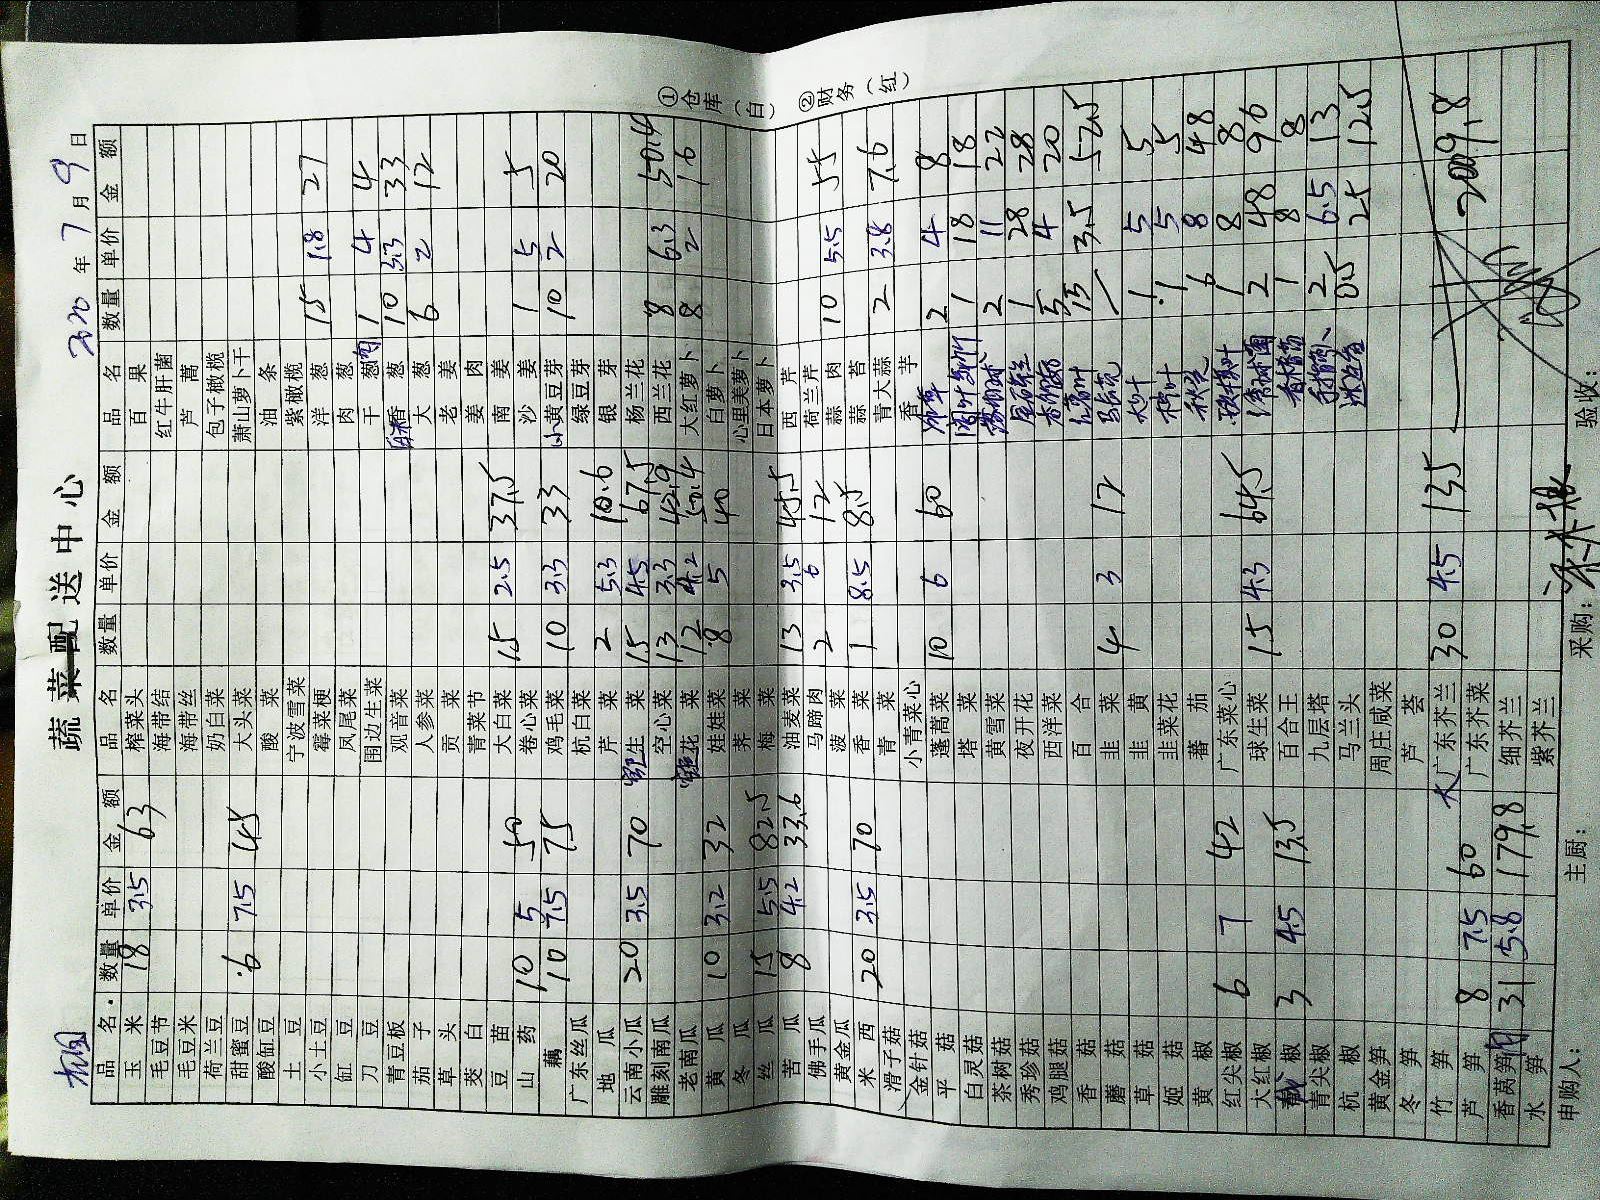 蔬菜配送中心
2020年7月9日
品名 数量 单价 金额
玉米 18 3.5 63
毛豆节
毛豆米
荷兰豆
甜蜜豆 6 7.5 45
酸缸豆
土豆
小土豆
缸豆
刀豆
青豆板
茄子
草头
茭白
豆苗
山药 10 5 50
藕 10 7.5 75
广东丝瓜
地瓜
云南小瓜 20 3.5 70
雕刻南瓜
老南瓜
黄瓜 10 3.2 32
冬瓜
丝瓜 15 5.5 82.5
苦瓜 8 4.2 33.6
佛手瓜
黄金瓜
米西 20 3.5 70
滑子菇
金针菇
平菇
白灵菇
茶树菇
秀珍菇
鸡腿菇
香菇
蘑菇
草菇
姬菇
黄椒
红尖椒 6 7 42
大红椒
椒 3 4.5 13.5
青尖椒
杭椒
黄金笋
冬笋
竹笋
芦笋 8 7.5 60
香莴笋 31 5.8 179.8
水笋
品名 数量 单价 金额
榨菜头
海带结
海带丝
奶白菜
大头菜
酸菜
宁波雪菜
霉菜梗
凤尾菜
围边生菜
观音菜
人参菜
贡菜
青菜节
大白菜 15 2.5 37.5
卷心菜
鸡毛菜 10 3.3 33
杭白菜
芹菜 2 5.3 10.6
生菜 15 4.5 67.5
空心菜 13 3.3 42.9
花菜 12 4.2 50.4
娃娃菜 8 5 40
荠菜
梅菜
油麦菜 13 3.5 45.5
马蹄肉 2 6 12
菠菜
香菜 1 8.5 8.5
青菜
小青菜心
蓬蒿菜 10 6 60
塔菜
黄雪菜
夜开花
西洋菜
百合
韭菜 4 3 12
韭黄
韭菜花
蕃茄
广东菜心
球生菜 15 4.3 64.5
百合王
九层塔
马兰头
周庄咸菜
芦荟
大广东芥兰 30 4.5 135
广东芥菜
细芥兰
紫芥兰
品名 数量 单价 金额
百果
红牛肝菌
芦蒿
包子橄榄
萧山萝卜干
油条
紫橄榄
洋葱 15 1.8 27
肉葱
干葱 1 4 4
香葱 10 3.3 33
大葱 6 2 12
老姜
姜肉
南姜
沙姜 1 5 5
小黄豆芽 10 2 20
绿豆芽
银芽
杨兰花
西兰花 8 6.3 50.4
大红萝卜 8 2 16
白萝卜
心里美萝卜
日本萝卜
西芹
荷兰芹
蒜肉 10 5.5 55
蒜苔
青大蒜 2 3.8 7.6
香芋
冰草 2 4 8
1 18 18
2 11 22
1 28 28
5 4 20
15 3.5 52.5
1 5 5
1 5 5
6 8 48
1 8 8
2 48 96
1 8 8
2 6.5 13
0.5 25 12.5
2009.8
①仓库(白) ②财务(红)
申购人: 主厨: 采购: 验收: